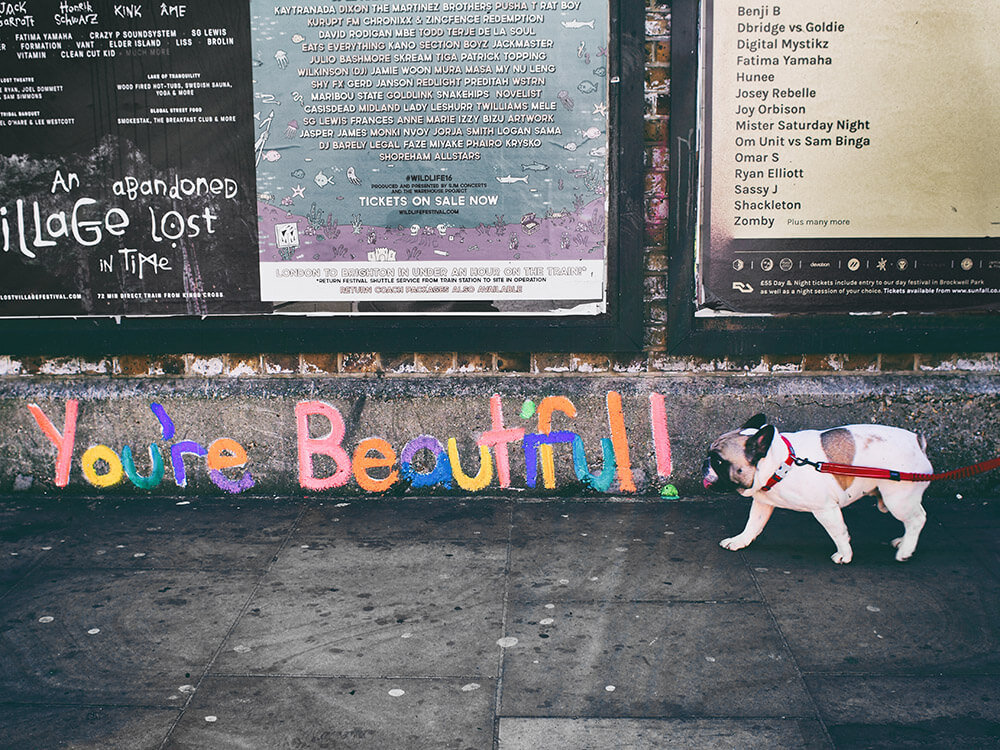 JACK GARRATT Henrik SCHWARZ KINK ÂME
FATIMA YAMAHA CRAZY P SOUNDSYSTEM SG LEWIS
FORMATION VANT ELDER ISLAND LISS BROLIN
VITAMIN CLEAN CUT KID MUCH MORE
LOST THEATRE
RYAN, JOEL DOMMETT
SAM SIMMONS
TRIBAL BANQUET
O'HARE & LEE WESTCOTT
LAKE OF TRANQUILITY
WOOD FIRED HOT-TUBS, SWEDISH SAUNA,
YOGA & MORE
GLOBAL STREET FOOD
SMOKESTAK, THE BREAKFAST CLUB & MORE
An abandoned
Village Lost
in Time
LOSTVILLAGEFESTIVAL.COM 72 MIN DIRECT TRAIN FROM KINGS CROSS
KAYTRANADA DIXON THE MARTINEZ BROTHERS PUSHA T RAT BOY
KURUPT FM CHRONIXX & ZINCFENCE REDEMPTION
DAVID RODIGAN MBE TODD TERJE DE LA SOUL
EATS EVERYTHING KANO SECTION BOYZ JACKMASTER
JULIO BASHMORE SKREAM TIGA PATRICK TOPPING
WILKINSON (DJ) JAMIE WOON MURA MASA MY NU LENG
SHY FX GERD JANSON REDLIGHT PREDITAH WSTRN
MARIBOU STATE GOLDLINK SNAKEHIPS NOVELIST
GASSDEAD MIDLAND LADY LESHURR TWILLIAMS MELE
SG LEWIS FRANCES ANNE MARIE IZZY BIZU ARTWORK
JASPER JAMES MONKI NVOY JORJA SMITH LOGAN SAMA
DJ BARELY LEGAL FAZE MIYAKE PHAIRO KRYSKO
SHOREHAM ALLSTARS
#WILDLIFE16
PRODUCED AND PRESENTED BY SJM CONCERTS
AND THE WAREHOUSE PROJECT
TICKETS ON SALE NOW
WILDLIFEFESTIVAL.COM
LONDON TO BRIGHTON IN UNDER AN HOUR ON THE TRAIN!*
*RETURN FESTIVAL SHUTTLE SERVICE FROM TRAIN STATION TO SITE IN OPERATION
RETURN COACH PACKAGES ALSO AVAILABLE
Benji B
Dbridge vs Goldie
Digital Mystikz
Fatima Yamaha
Hunee
Josey Rebelle
Joy Orbison
Mister Saturday Night
Om Unit vs Sam Binga
Omar S
Ryan Elliott
Sassy J
Shackleton
Zomby Plus many more
devotion
£55 Day & Night tickets include entry to our day festival in Brockwell Park
as well as a night session of your choice. Tickets available from www.sunfall.co
You're Beautiful!